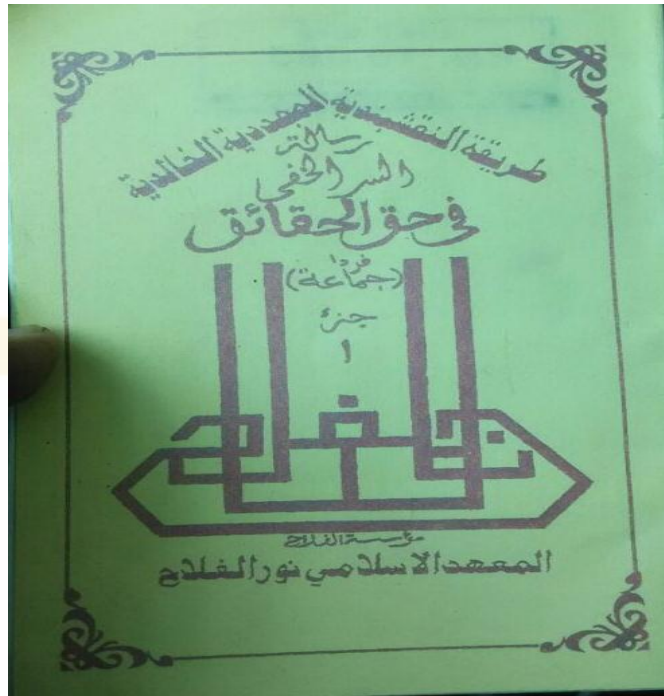 طريقة النقشبندية المجددية الخالدية
رسالة
السر الخفي
في حق الحقائق
فردا
(جماعة)
جزء
١
نور الفلاح
مؤسسة الفلاح
المعهد الاسلامي نور الفلاح